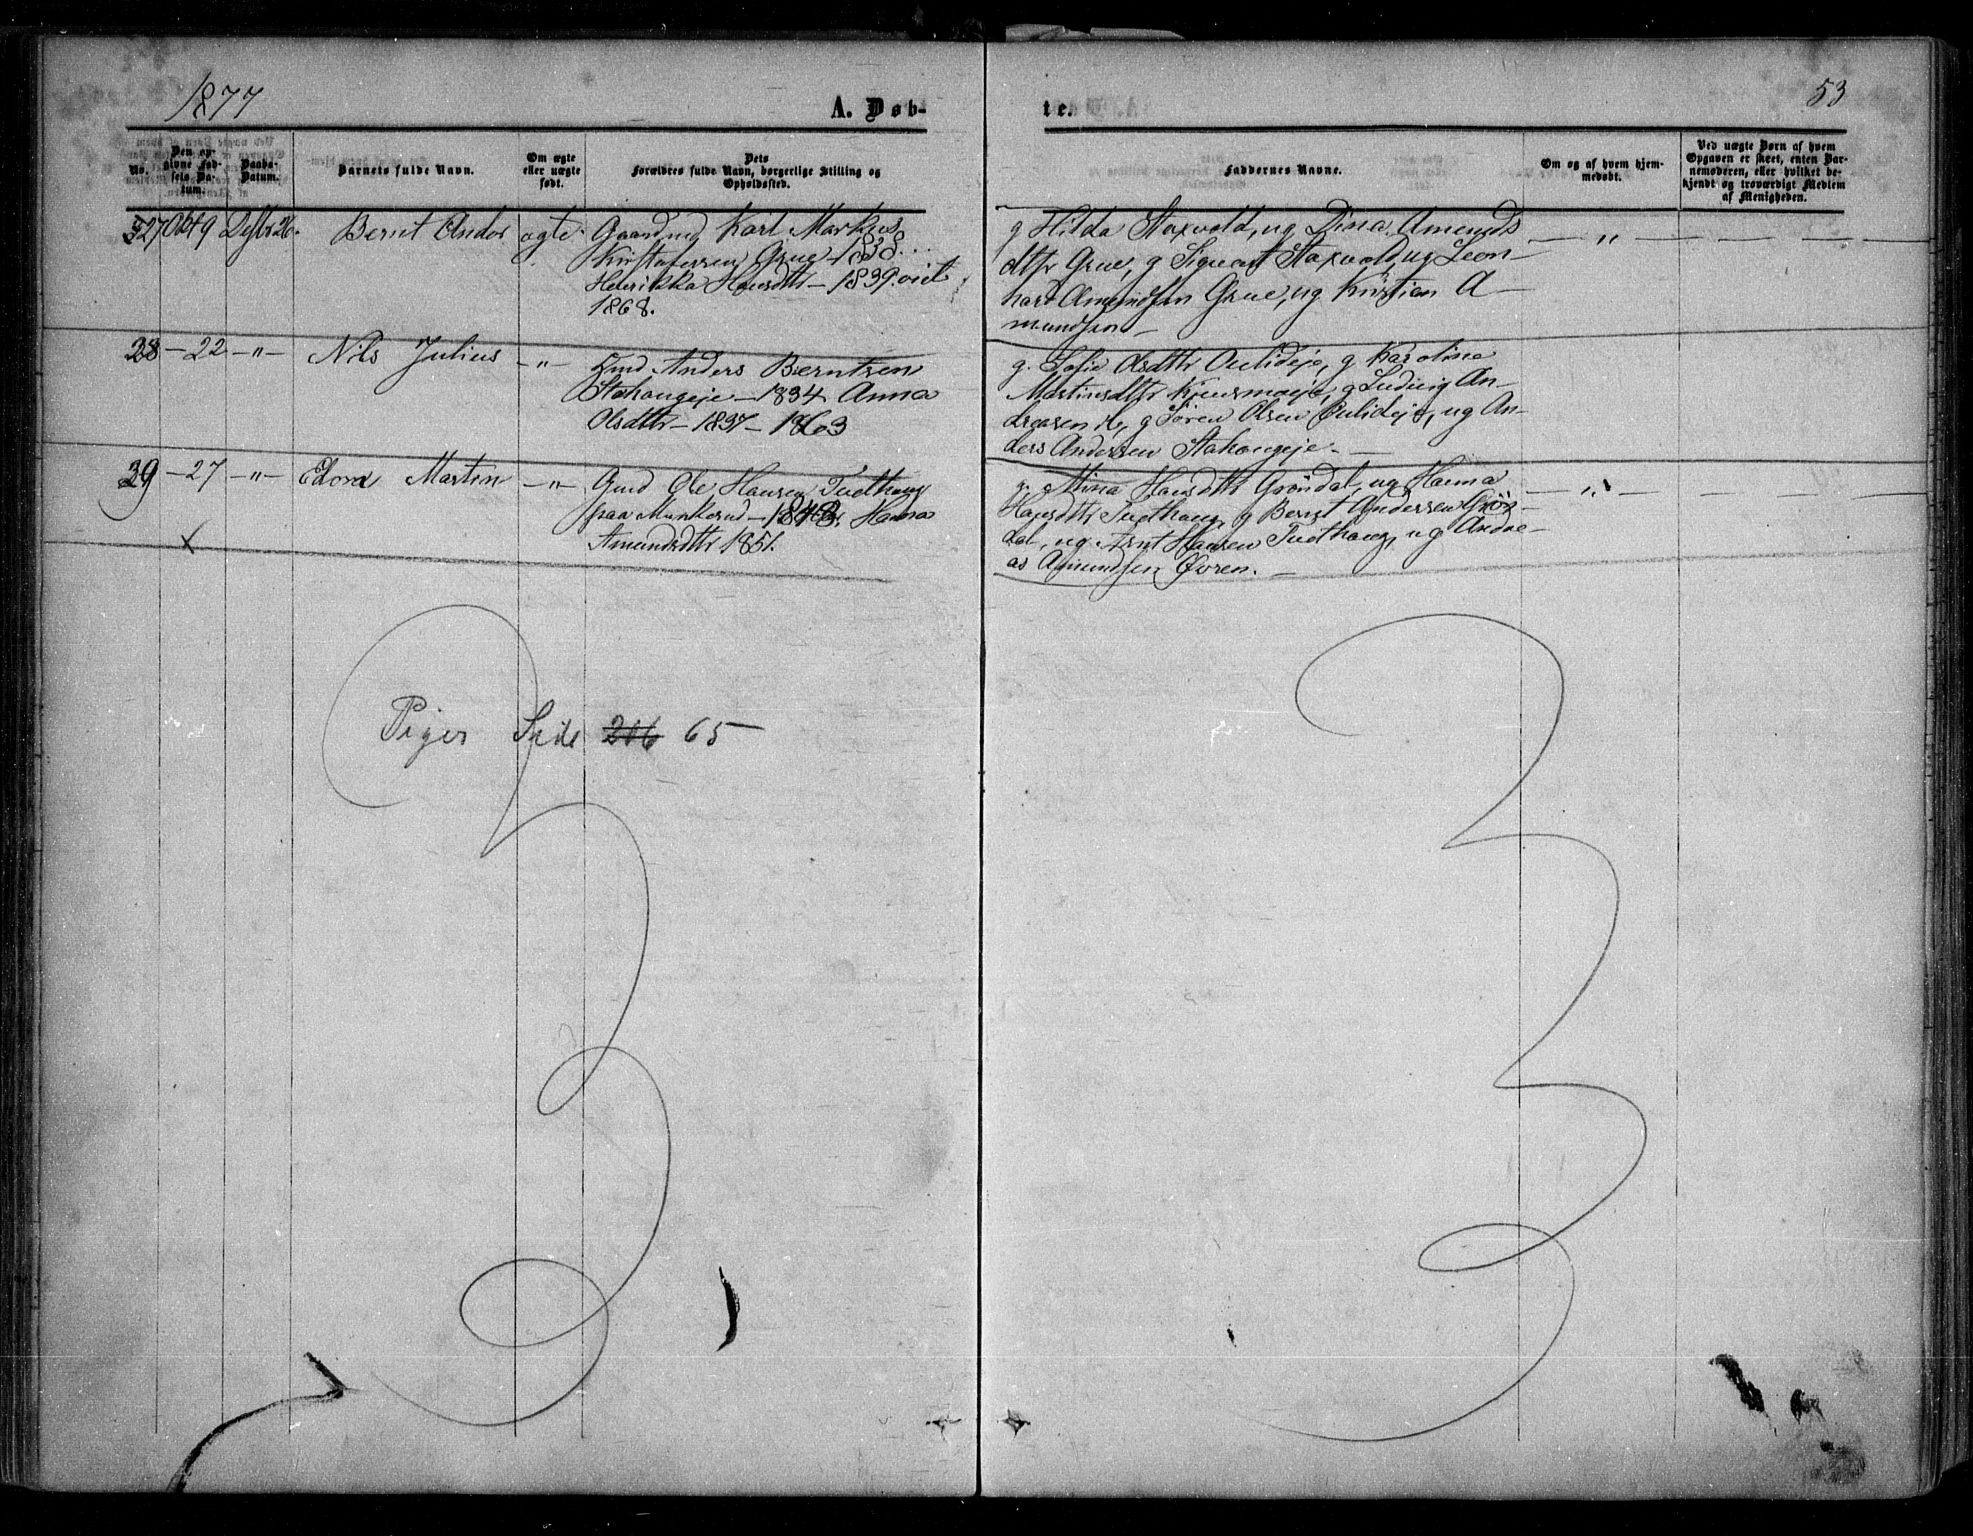 1877
A. Døb-
te.
53
No.
Den op-
givne Fød-
sels Da-
tum.
Daabs-
Datum.
Barnets fulde Navn.
Om ægte
eller uægte
født.
Dets
Forældres fulde Navn, borgerlige Stilling og
Opholdssted.
Faddernes Navne.
Om og af hvem hjem-
medøbt.
Ved uægte Børn af hvem
Opgaven er skeet, enten Bar-
nemoderen, eller hvilket be-
kjendt og troværdigt Medlem
af Menigheden.
27 Okt 9 Desbr 26. Bernt Andor ægte. Gaardmd Karl Markus
Kristofersen Grue - 1838.
Henrikka Hansdtr - 1839. viet
1868.
g Hilda Staxvold, ug Dina Amunds
dtr Grue, g Sigvart Staxvold, ug Leon-
hart Amundsen Grue, ug Kristian A-
mundsen -
28 - 22 - " - Nils Julius - " - Hmd Anders Berntsen
Stahaugeje - 1834 Anna
Olsdtr - 1837 - 1863
g. Sofie Olsdtr Oulideje, g Karoline
Martinsdtr g Ludvig An-
dreasen ib, g Søren Olsen Oulideje, ug An-
ders Andersen Stahaugeje. -
39 - 27 - " - Edvard Martin - " - Gmd Ole Hansen Tuethaug
paa Munkerud - 1848. Hanna
Amundsdtr 1851.
g. Mina Hansdtr Grøndal, ug Hanna
Hansdtr Tuethaug, g Bernt Andersen Grøn-
dal, ug Arnt Hansen Tuethaug, ug Andre-
as Amundsen Øvren. -
Piger Side 206 65